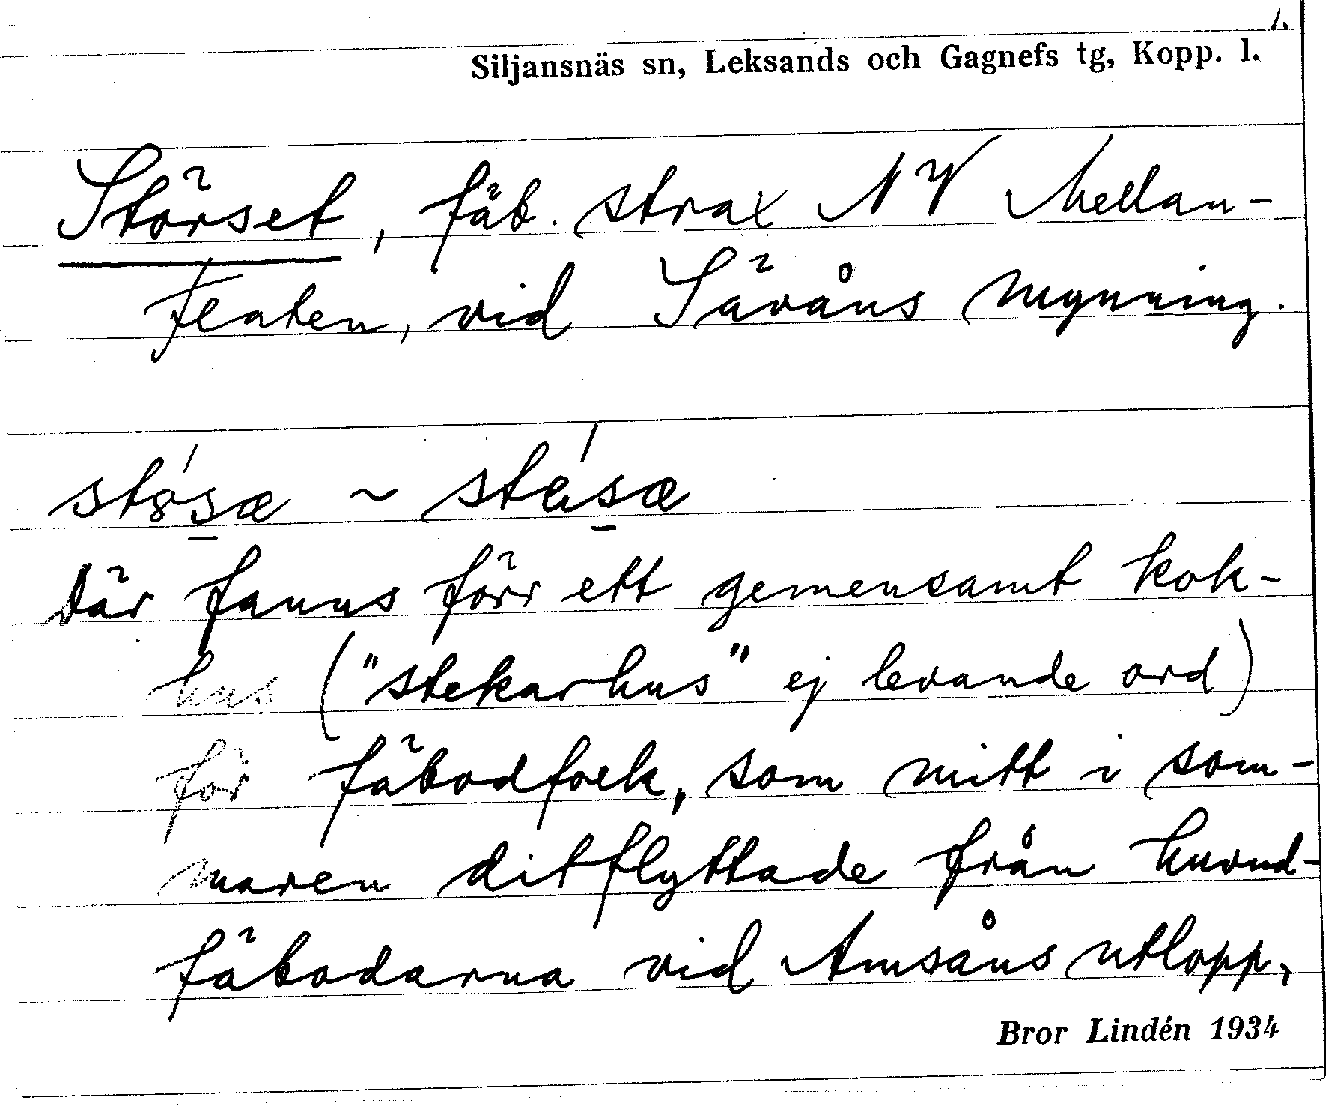 1.
Siljansnäs sn, Leksands och Gagnefs tg, Kopp. l.
Störset, fäb. strax NV Mellan-
flaten, vid Sävåns mynning.
stø´sæ ~ sta´sæ
Där fanns förr ett gemensamt kok-
hus ("stekarhus" ej levande ord)
för fäbodfolk, som mitt i som-
maren ditflyttade från huvud-
fäbodarna vid Amsåns utlopp,
Bror Lindén 1934